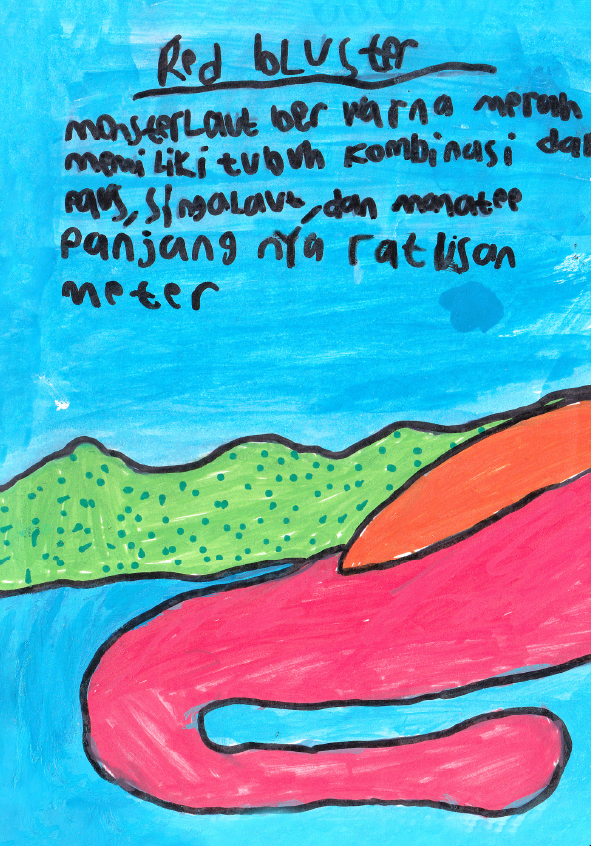 Red bLUSter
monsterLaut ber warna merah
memiliki tubuh kombinasi dari
paus, singaLaut, dan manatee
panjang nya ratusan
meter